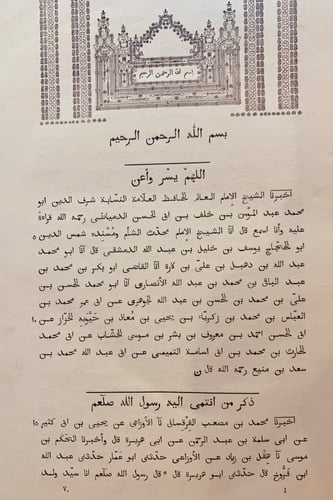 بسم الله الرحمن الرحيم
بسم الله الرحمن الرحيم
اللهمّ يسّر وأعن
اخبرنا الشيخ الإمام العالم الحافظ العلامة النسّابة شرف الدين ابو
محمد عبد المؤمن بن خلف بن ابى الحسن الدمياطى رحمه الله قراءة
عليه وأنا اسمع قال أنا الشيخ الإمام محدّث الشأم ومُسْنِده شمس الدين ٥
ابو الحجّاج يوسف بن خليل بن عبد الله الدمشقى قال أنا ابو محمد
عبد الله بن دهبل بن علىّ بن كارة أنا القاضى ابو بكر بن محمد بن
عبد الباقى بن محمد بن عبد الله الأنصارى أنا ابو محمد الحسن بن
علىّ بن محمد بن الحسن بن عبد الله الجوهرى عن ابى عمر محمد بن
العبّاس بن محمد بن زكرياء بن يحيى بن معاذ بن حيّويه الخزاز عن ١٠
ابى الحسن احمد بن معروف بن بشر بن موسى الخشّاب عن ابى محمد
الحارث بن محمد بن ابى اسامة التميمى عن ابى عبد الله محمد بن
سعد بن منيع رحمه الله قال
ذكر من انتمى اليه رسول الله صلّعم
اخبرنا محمد بن مصعب القرقسانى نا الأوزاعى عن يحيى بن ابى كثير ١٥
عن ابى سلمة بن عبد الرحمن عن ابى هريرة قال وأخبرنا الحكم بن
موسى نا هِقْل بن زياد عن الأوزاعى حدّثنى ابو عمّار حدّثنى عبد الله
ابن فرّوخ قال حدّثنى ابو هريرة قال * قال رسول الله صلّعم انا سيّد ولد
٧. 1